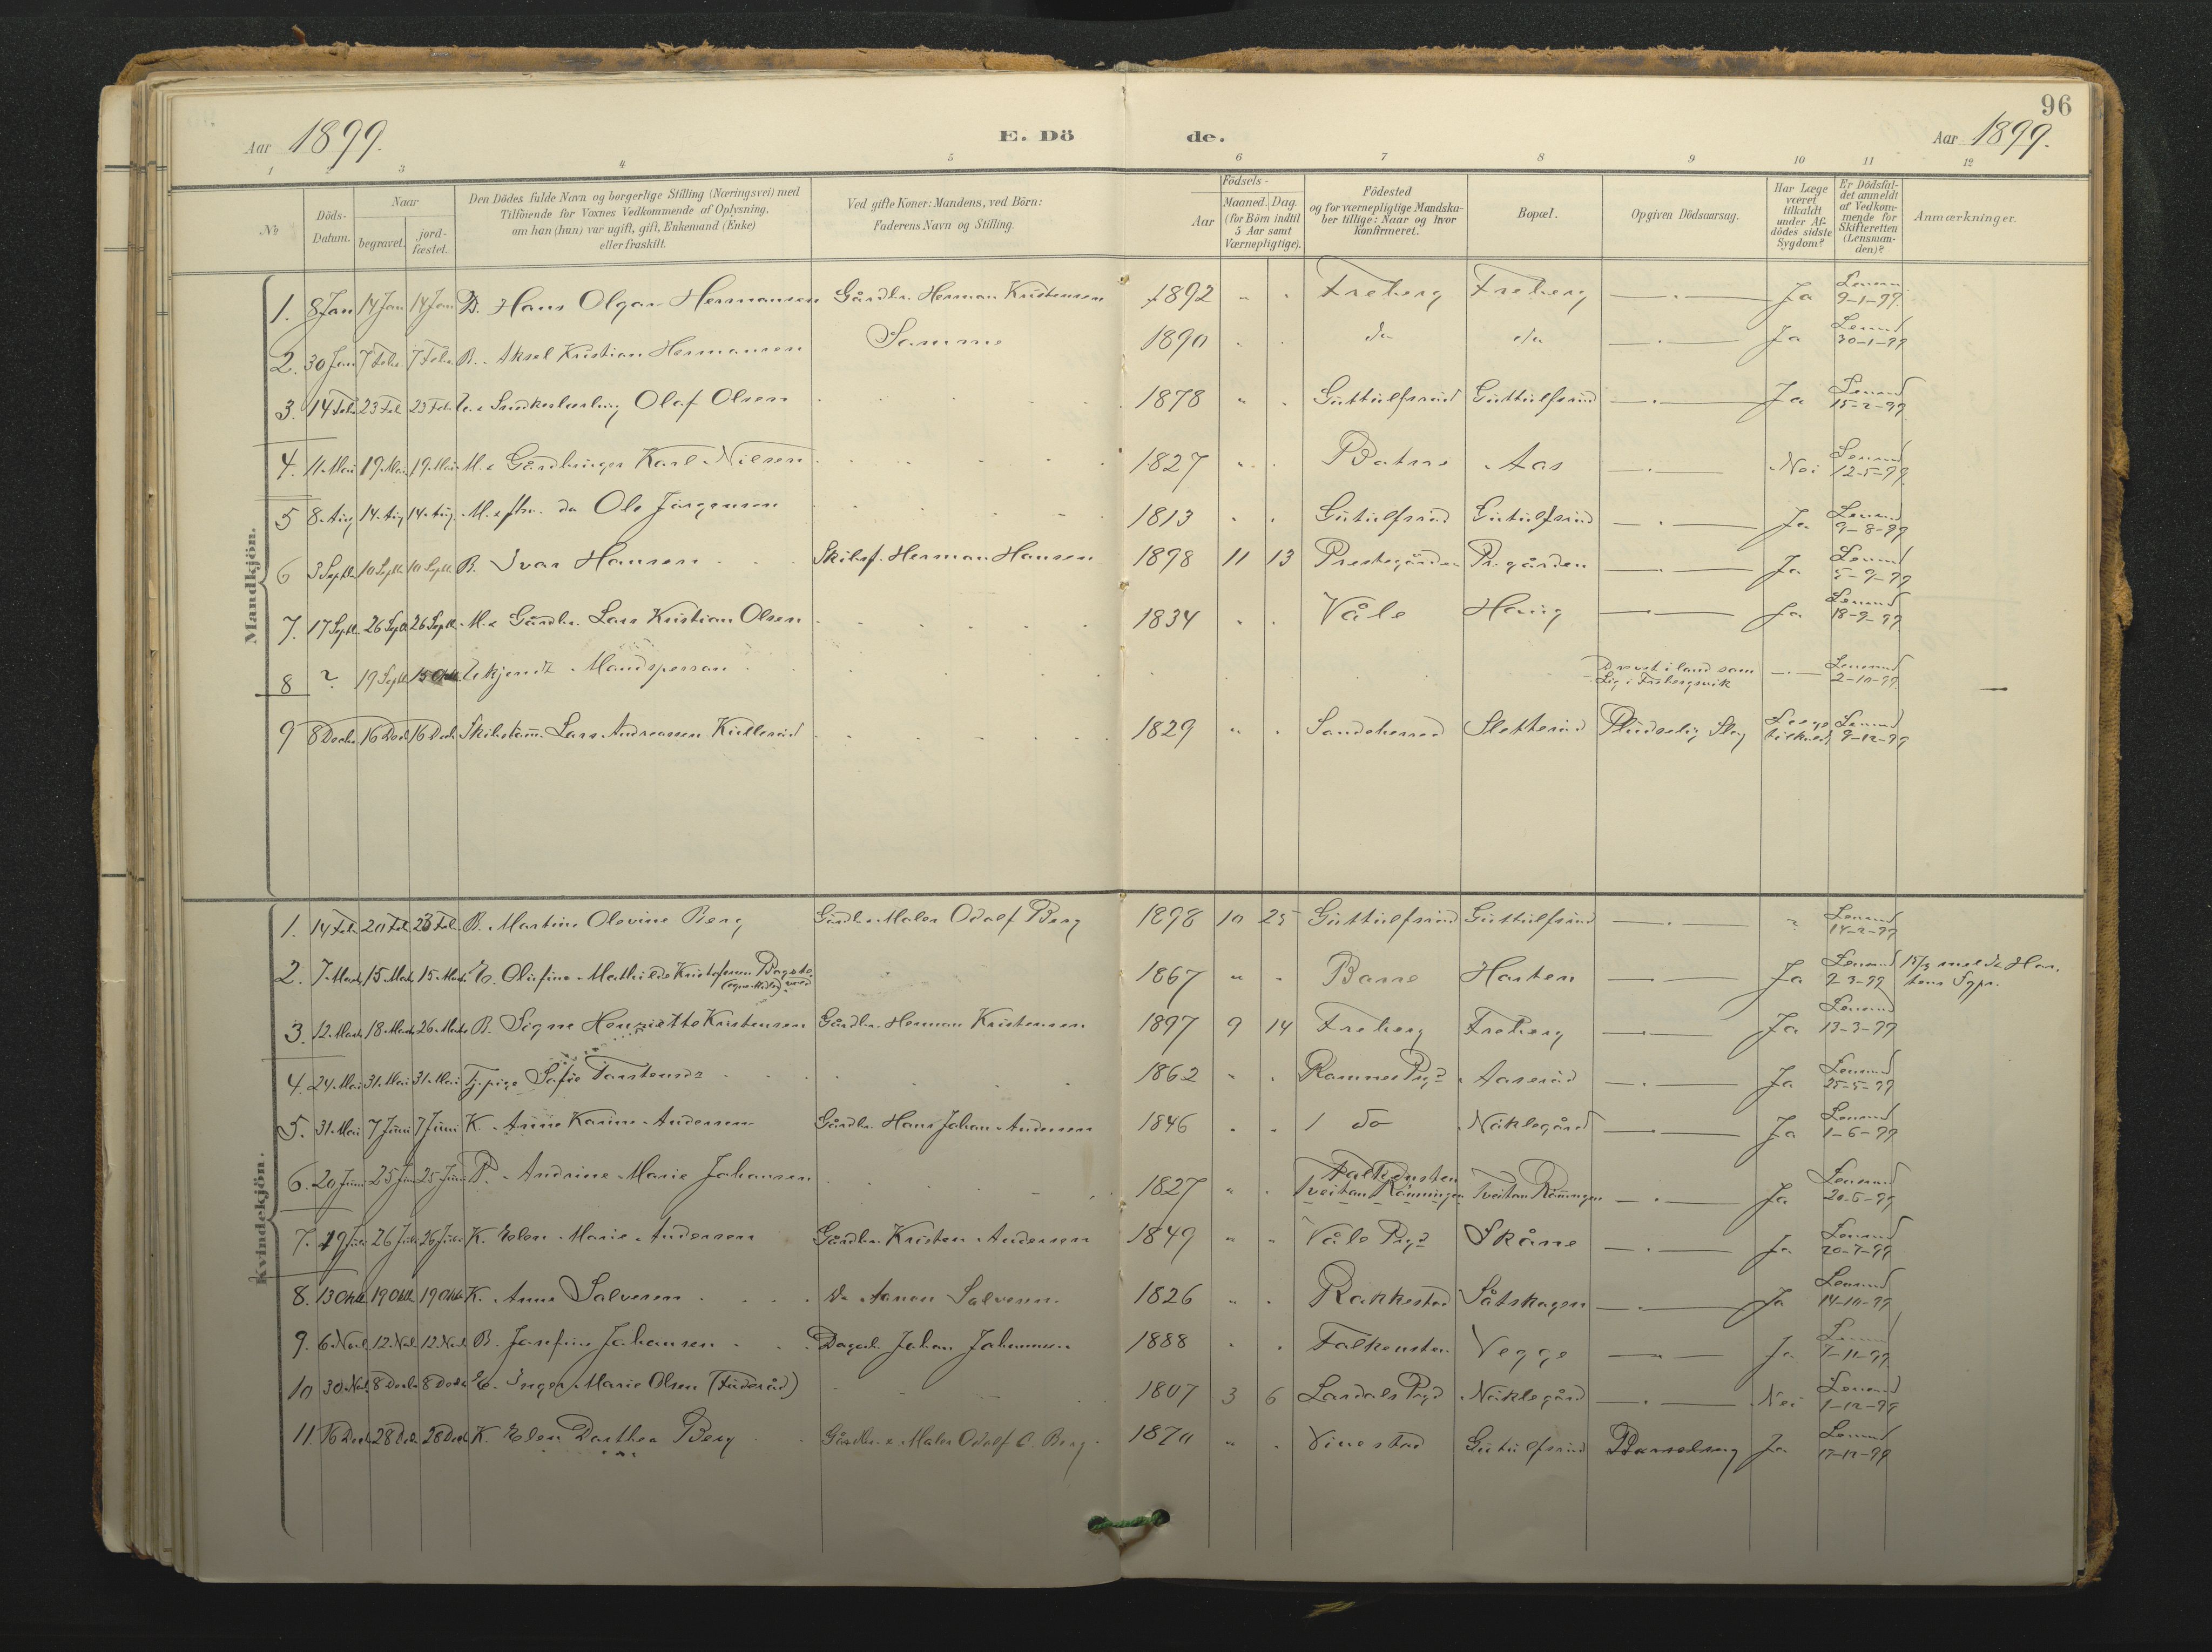 96
Aar 1899. E. Dö de. Aar 1899.
1 2 3 4 5 6 7 8 9 10 11 12
No
Döds-
Datum.
Naar
begravet.
jord-
fæstet.
Den Dödes fulde Navn og borgerlige Stilling (Næringsvei) med
Tilföiende for Voxnes Vedkommende af Oplysning,
om han (hun) var ugift, gift, Enkemand (Enke)
eller fraskilt.
Ved gifte Koner: Mandens, ved Börn:
Faderens Navn og Stilling.
Födsels-
Aar
Maaned. Dag.
(for Börn indtil
5 Aar samt
Værnepligtige).
Födested
og for værnepligtige Mandska-
ber tillige: Naar og hvor
konfirmeret.
Bopæl.
Opgiven Dödsaarsag.
Har Læge
været
tilkaldt
under Af-
dödes sidste
Sygdom?
Er Dödsfal-
det anmeldt
af Vedkom-
mende for
Skifteretten
(Lensman-
den)?
Anmærkninger.
Mandkjön.
1. 8 Jan 14 Jan 14 Jan B. Hans Olgar Hermansen Gårdbr. Herman Kristensen 1892 " " Freberg Freberg — . — Ja Lensm. 9-1-99
2. 30 Jan 7 Febr. 7 Febr. B. Aksel Kristian Hermansen Samme 1890 " " do do — . — Ja Lensmd 30-1-99
3. 14 Feb. 23 Feb. 23 Feb. Olaf Olsen 1878 " " Guttulfsrud Guttulfsrud — . — Ja Lensmd 15-2-99
4. 11. Mai 19. Mai 19. Mai M. Gårdbruger Karl Nilsen 1827 " " Botne Aas — . — Nei Lensmd 12-5-99
5 8. Aug 14. Aug 14. Aug. do Ole Jørgensen 1813 " " Gutulfsrud Gutulfsrud — . — Ja Lensmd 9-8-99
6 3 Septb. 10 Septb. 10 Septb. B. Ivar Hansen Skibsf. Herman Hansen 1898 11 13 Prestegården Pr. gården — . — Ja Lensmd 5-9-99
7. 17 Septb. 26 Septb. 26 Septb. M. Gårdbr. Lars Kristian Olsen 1834 " " Våle Haug — . — Ja Lensmd 18-9-99
8 ? 19 Septb. 15 Oktb. Ukjendt Mandsperson Drevet i land som — . — Lensmd
Lig i Frebergsvik 2-10-99
9 8 Decbr. 16 Decb. 16 Decb. Skibstømm. Lars Andreassen Kullerud 1829 " " Sandeherred Sletterud Pludselig Slag Læge tilkaldt Lensmd 9-12-99
Kvindekjön.
1. 14 Feb. 20 Feb. 23 Feb. B. Martine Olevine Berg Gårdbr. Maler Odolf Berg 1898 10 25 Guttulfsrud Guttulfsrud — . — " Lensmd 14-2-99
2. 7. Marts 15. Marts 15. Marts E. Olufine Mathilde Kristofersen 1867 " " Borre Horten — . — Ja Lensmd 2-3-99
3. 12. Marts 18. Marts 26. Marts B. Signe Henriette Kristensen Gårdbr. Herman Kristensen 1897 9 14 Freberg Freberg — . — Ja Lensmd 13-3-99
4. 24. Mai 31. Mai 31. Mai Tj. pige Sofie Torstensd. 1862 " " Ramnes Prgd Aaserud — . — Ja Lensmd 25-5-99
5. 31. Mai 7 Juni 7 Juni K. Anne Karine Andersen Gårdbr. Hans Johan Andersen 1846 " " do Näklegård — . — Ja Lensmd 1-6-99
6. 20 Juni 25 Juni 25 Juni P. Andrine Marie Johansen 1827 " " Falkensten
Tveitan Rönningen Tveitan Rönningen — . — Ja Lensmd 20-6-99
7. 19 Juli 26 Juli 26 Juli K. Elen Marie Andersen Gårdbr. Kristen Andersen 1849 " " Våle Prgd Skåne — . — Ja Lensmd 20-7-99
8. 13 Oktb. 19 Oktb. 19 Oktb. K. Anne Salvesen Do Salvesen 1826 " " Rakkestad Såtskagen — . — Ja Lensmd 14-10-99
9. 6 Novb. 12. Novb. 12. Novb. B. Josefine Johansen Johan Johannesen 1888 " " Falkensten Vegge — . — Ja Lensmd 7-11-99
10 30 Novb. 8 Decbr. 8 Decbr. E. Inger Marie Olsen (Föderåd) 1807 3 6 Lardals Prgd Näklegård — . — Nei Lensmd 1-12-99
11. 16 Decb. 28 Decb. 28 Decb. K. Elen Dorthea Berg Gårdbr. & Maler Odolf O. Berg. 1870 " " Vivestad Gutulfsrud Barselseng Ja Lensmd 17-12-99